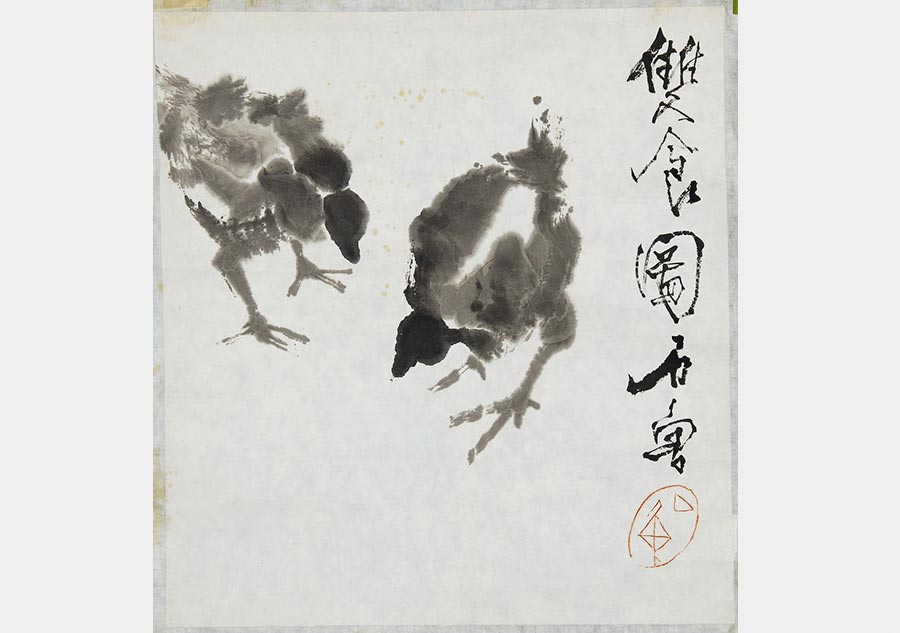 雙食圖石魯